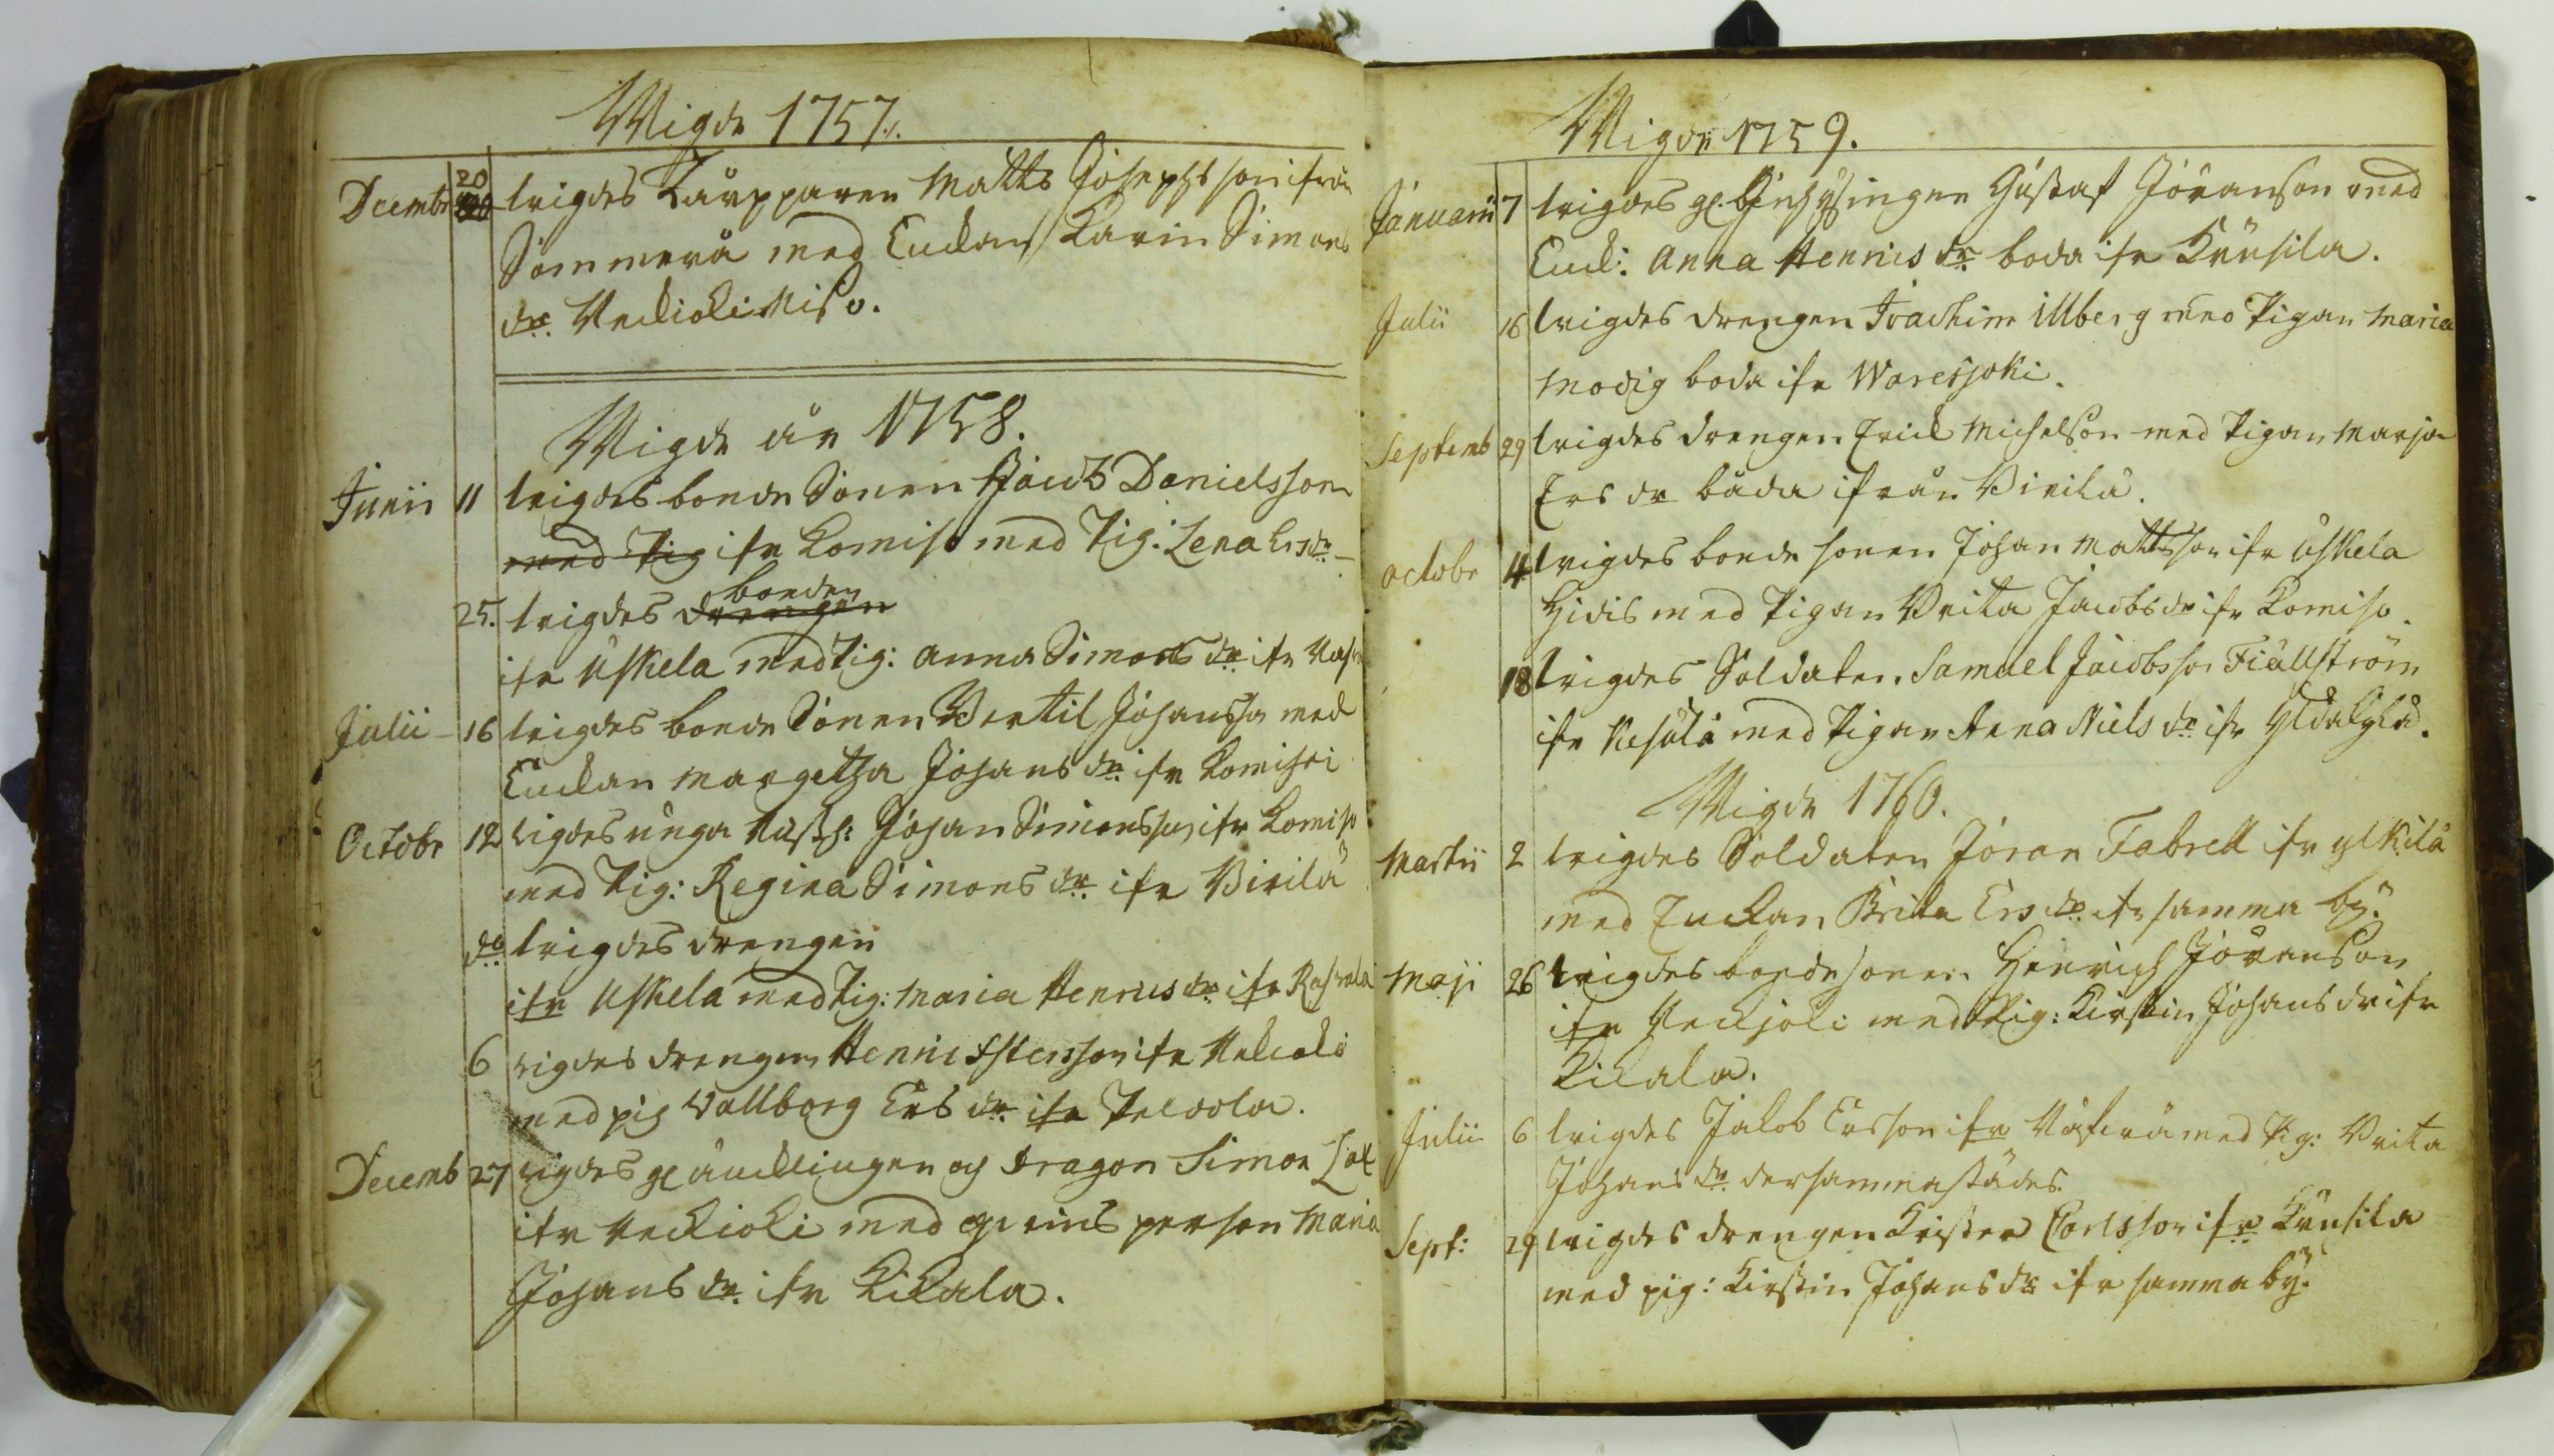 Wigde 1757.
Decembr 20 wigdes Torpparen Matts Josephsson ifrån
Sommerå med Enckan Karin Simons
dr. Veckioki Miso.
Wigde år 1758.
Junii 11 wigdes bonde Sonen Jacob Danielsson
med Pig ifr Komiso med Pig: Lena Ersdr
25. wigdes drengen bonden
ifr Uskela med Pig: Anna Simons dr ifr
Julii 16 wigdes bonde Sonen Bertil Johansson med
Enckan Margetha Johans dr ifr Komisoi
Octobr 12 wigdes unga Rusth: Johan Simonsson ifr Komiso
med Pig: Regina Simons dr ifr Virilä
do wigdes drengen
ifr Uskela med Pig: Maria Henrics dr ifr
6 wigdes drengen Henric ifr
med pig Wallborg Ers dr ifr
Decemb 27 wigdes och Dragon Simon Lax
ifr Veckioki med person Maria
Johans dr ifr Kickala.
Wigde 1759.
Januarii 7 wigdes Gustaf Jöranson med
Enck: Anna Hennis dr boda ifr Krusila.
Julii 16 wigdes drengen Joachim Ulberg med Pigan Maria
Modig boda ifr Waresjoki.
Septemb 29 wigdes drengen Erick Michelson med Pigan Marja
Ers dr båda ifrån Virilä.
Octobr 4 wigdes bonde sonen Johan Mattsson ifr Uskela
Hidis med Pigan Brita Jacobs dr ifr Komiso.
18 wigdes Soldaten Samuel Jacobsson Fiällström
ifr med Pigan Anna Niels dr ifr
Wigde 1760.
Martii 2 wigdes Soldaten Jöran Fabrell ifr Ylkilä
med Enckan Brita Ers dr ifr samma by.
Maji 26 wigdes bonde sonen Henrich Jöranson
ifr Veckjoki med Pig: Kirstin Johans dr ifr
Kickala.
Julii 6 wigdes Jakob Ersson ifr med Pig: Brita
Johans dr dersammastädes.
Sept: 29 wigdes drengen Krister Carlsson ifr Krusila
med pig: Kirstin Johans dr ifr samma by.